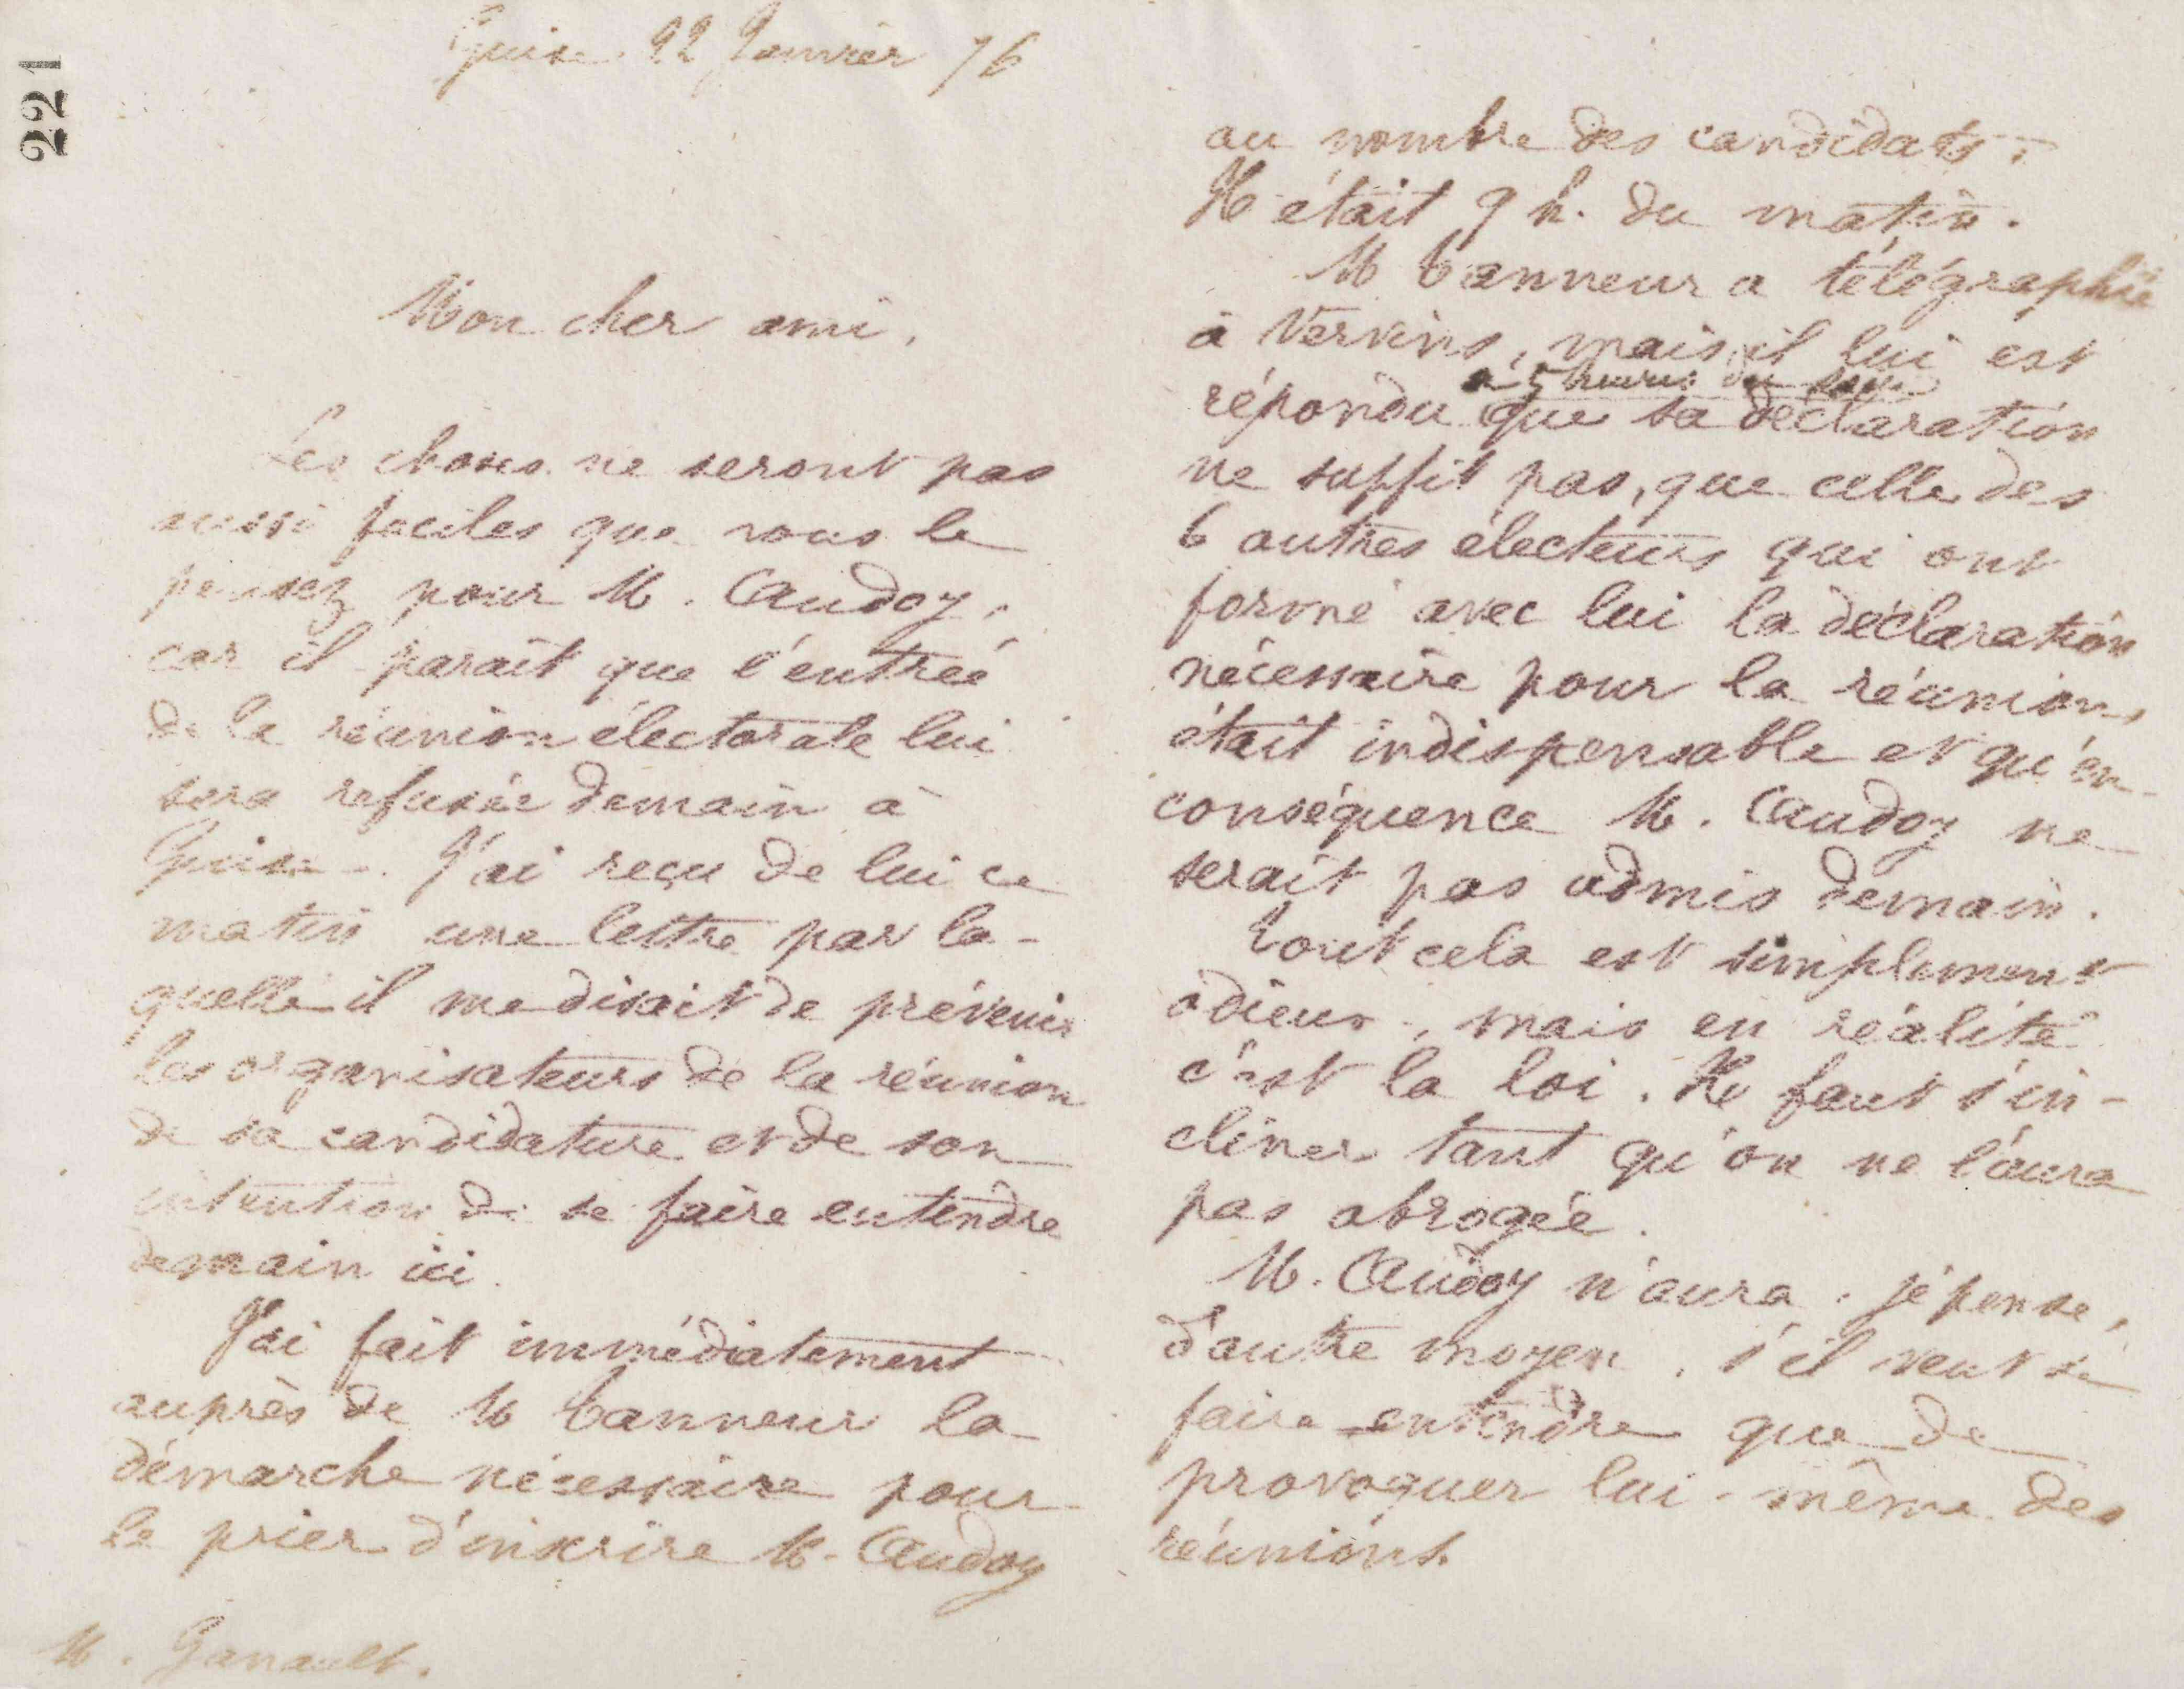 221
Guise 22 Janvier 76
Mon cher ami,
Les choses ne seront pas
aussi faciles que vous le
pensez pour M. Caudoy,
car il paraît que l'entrée
de la réunion électorale lui
sera refusée demain à
Guise. J'ai reçu de lui ce
matin une lettre par la-
quelle il me disait de prévenir
les organisateurs de la réunion
de sa candidature et de son
intention de se faire entendre
demain ici.
J'ai fait immédiatement
auprès de M Canneur la
démarche nécessaire pour
le prier d'inscrire M. Caudoy
M. Ganault.
au nombre des candidats.
Il était 9 h. du matin.
M Canneur a télégraphié
à Vervins, mais il lui est
à 5 heures du soir
répondu que sa déclaration
ne suffit pas, que celle des
6 autres électeurs qui ont
formé avec lui la déclaration
nécessaire pour la réunion,
était indispensable et qu'en
conséquence M. Caudoy ne
serait pas admis demain.
Tout cela est simplement
odieux, mais en réalité
c'est la loi. Il faut s'in-
cliner tant qu'on ne l'aura
pas abrogée.
M. Caudoy n'aura, je pense,
d'autre moyen, s'il veut se
faire entendre que de
provoquer lui-même des
réunions.